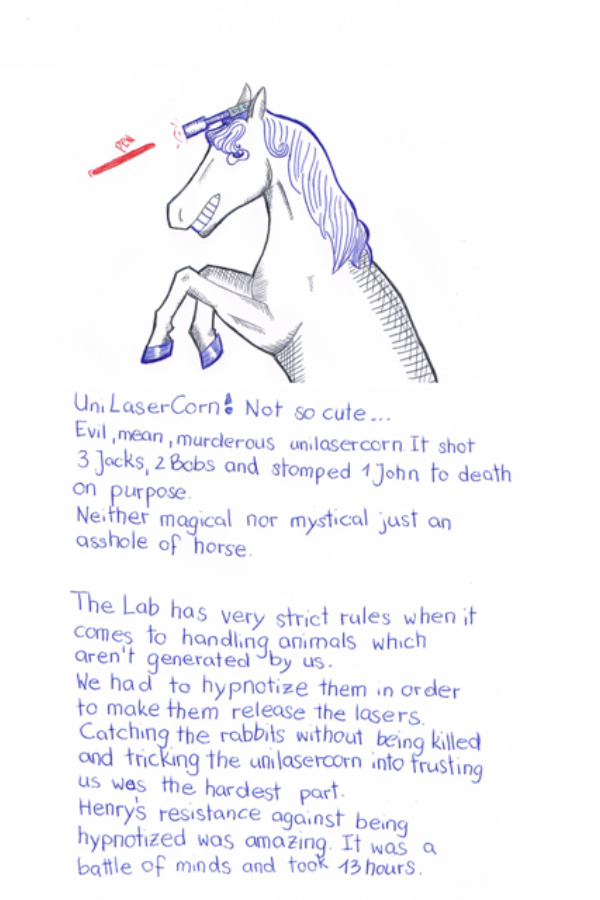 PEW
UniLaserCorn! Not so cute...
Evil, mean, murderous unilasercorn. It shot
3 Jacks, 2 Bobs and stomped 1 John to death
on purpose.
Neither magical nor mystical just an
asshole of horse.
The Lab has very strict rules when it
comes to handling animals which
aren't generated by us.
We had to hypnotize them in order
to make them release the lasers.
Catching the rabbits without being killed
and tricking the unilasercorn into trusting
us was the hardest part.
Henry's resistance against being
hypnotized was amazing. It was a
battle of minds and took 13 hours.